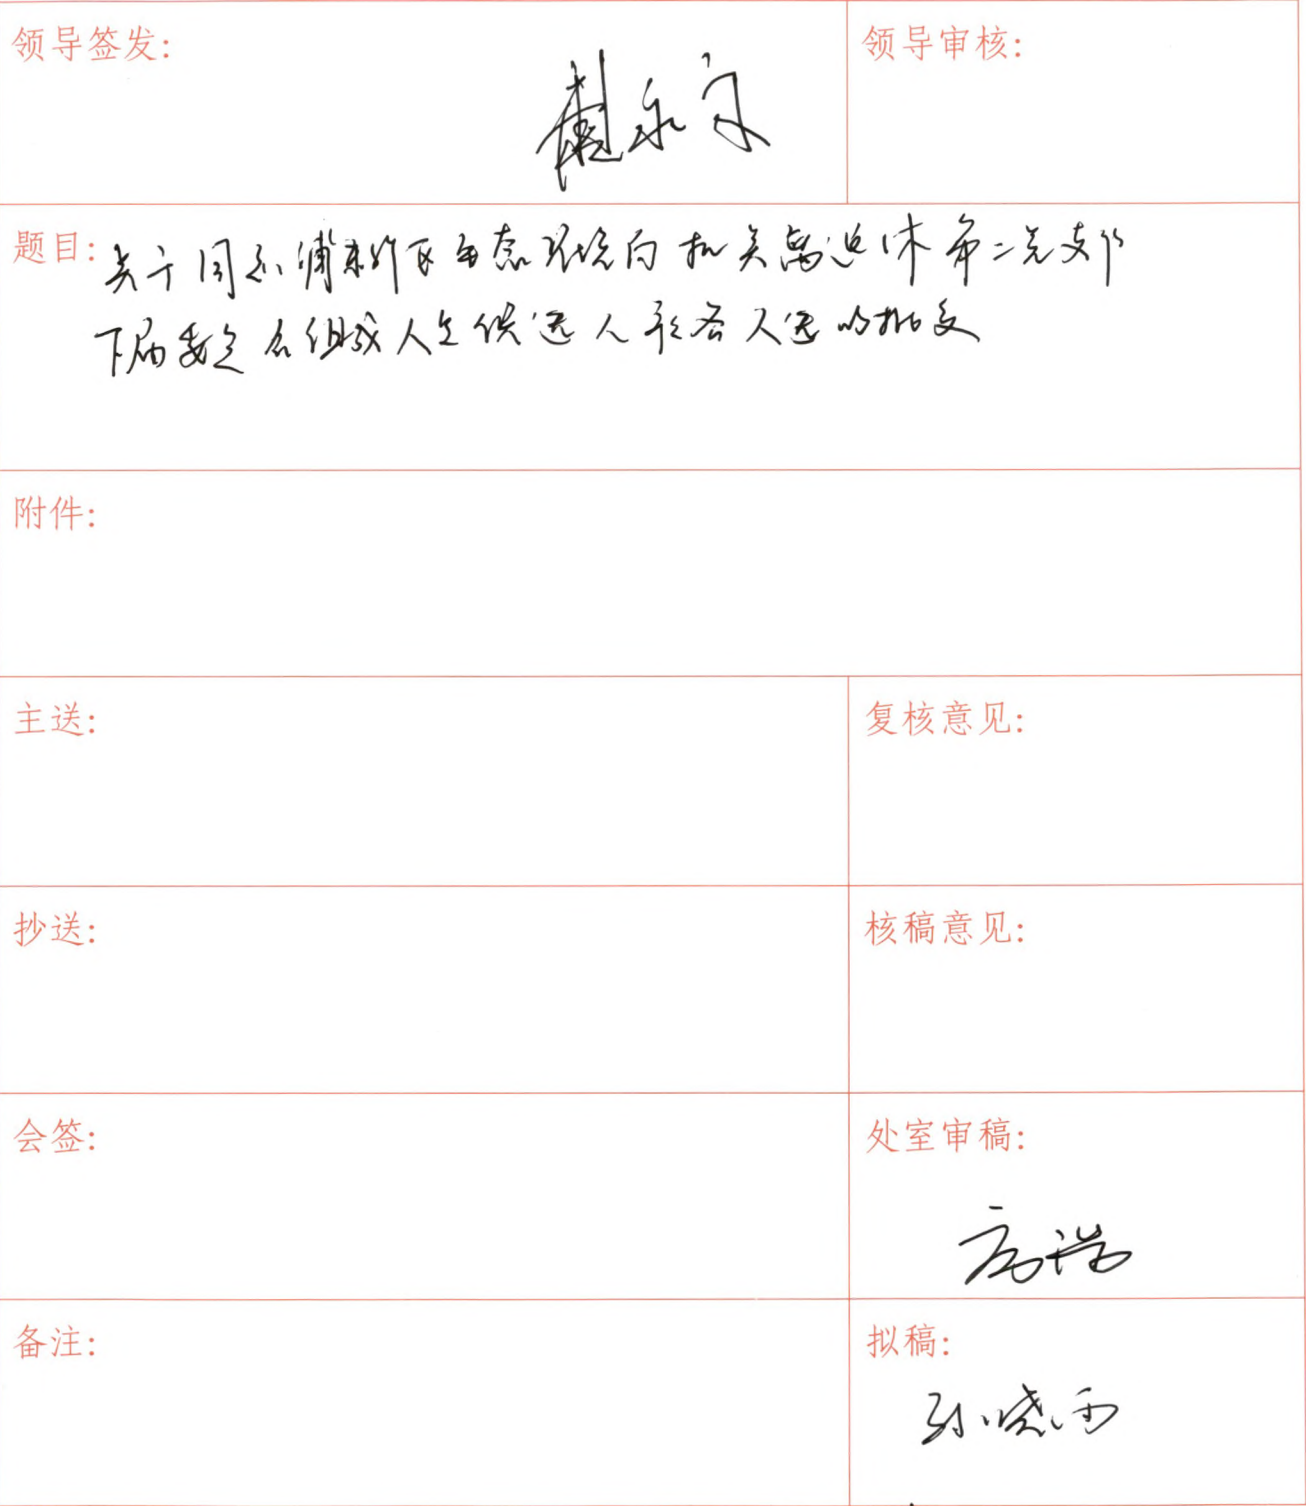 领导签发:
领导审核:
题目: 关于同意浦东新区生态环境局机关离退休第二党支部
下届委员会组成人员候选人预备人选的批复
附件:
主送:
复核意见:
抄送:
核稿意见:
会签:
处室审稿:
备注:
拟稿:
孙晓雨